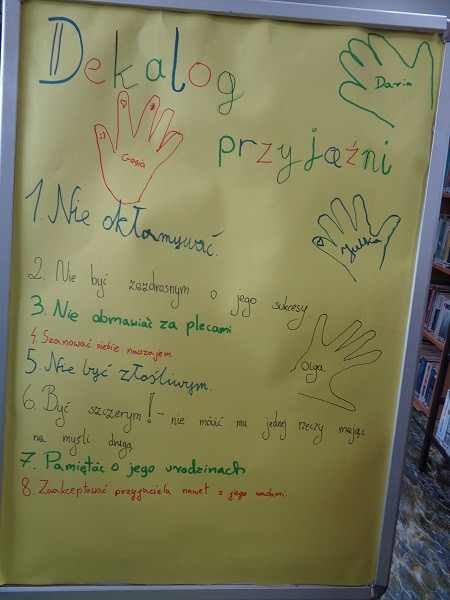 Dekalog
przyjaźni
Daria
Gosia
Julka
Olga
1. Nie okłamywać.
2. Nie być zazdrosnym o jego sukcesy.
3. Nie obmawiać za plecami
4. Szanować siebie nawzajem.
5. Nie być złośliwym.
6. Być szczerym! - nie mówić mu jednej rzeczy mając
na myśli drugą.
7. Pamiętać o jego urodzinach
8. Zaakceptować przyjaciela nawet z jego wadami.